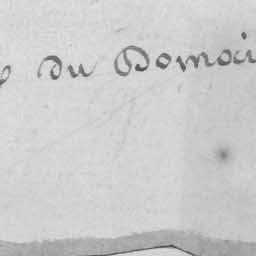 du Domai